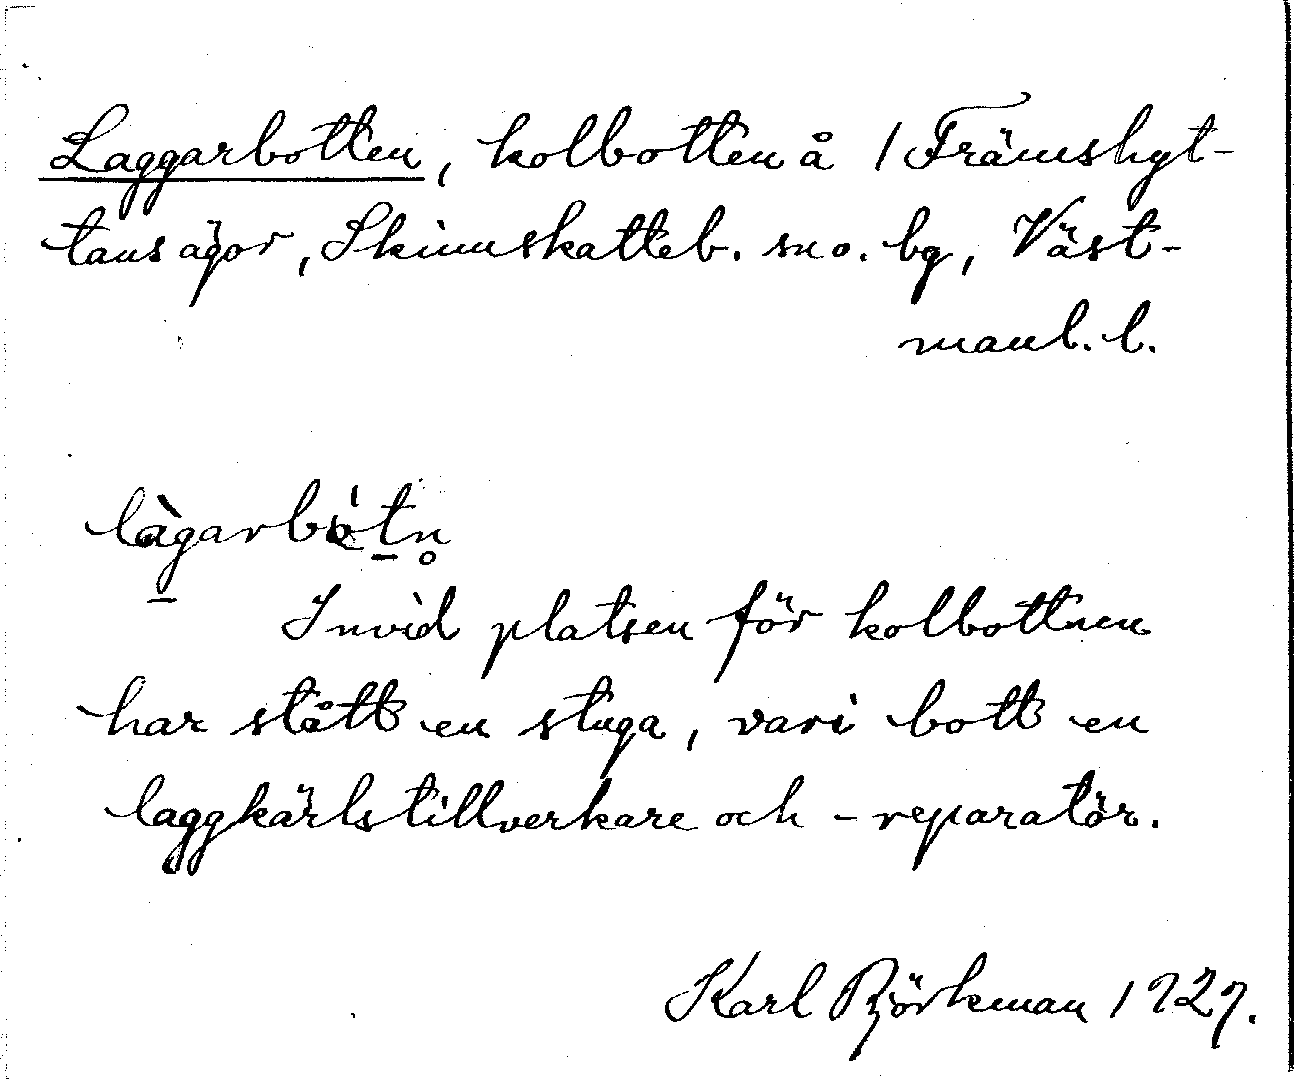 Laggarbotten, kolbotten å / Främshyt-
tans ägor, Skinnskatteb. sn o. bg, Väst-
manl. l.
làgarbòtn̥
Invid platsen för kolbottnen
har stått en stuga, vari bott en
laggkärlstillverkare och -reparatör.
Karl Björkman 1927.